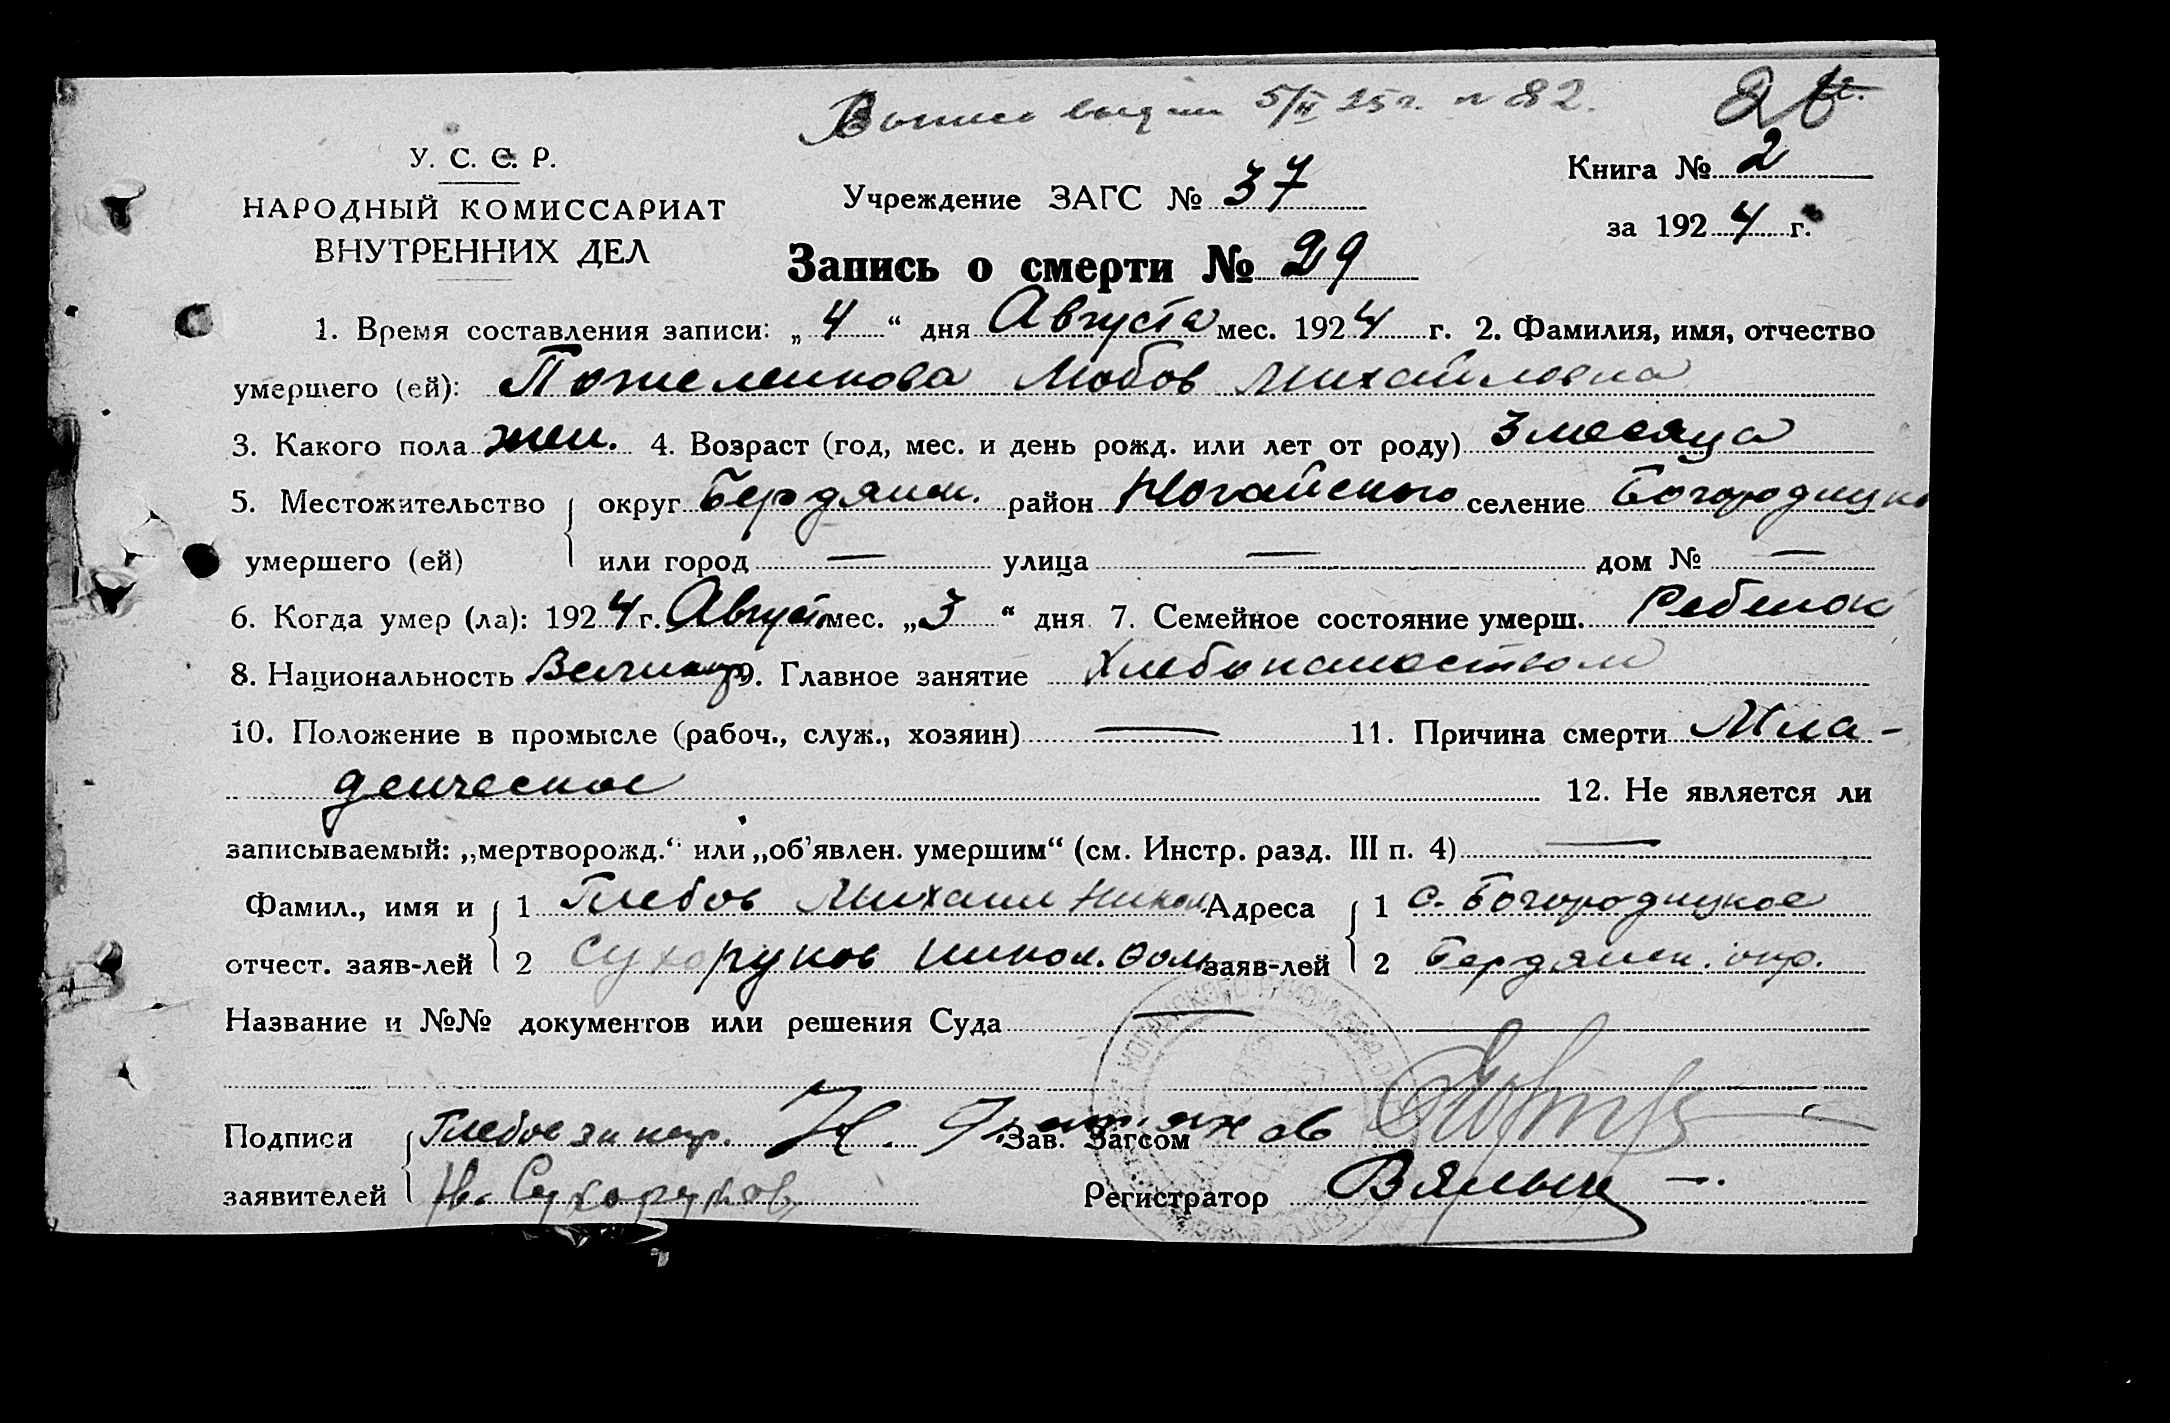 Выпись выдана 5/II 25 г. № 82.
У. С. С. Р.
НАРОДНЫЙ КОМИССАРИАТ
ВНУТРЕННИХ ДЕЛ
Учреждение ЗАГС № 37
Книга № 2
за 1924 г.
Запись о смерти № 29
1. Время составления записи: „4“ дня Августа мес. 1924 г. 2. Фамилия, имя, отчество
умершего (ей): Любов Михайловна
3. Какого пола жен. 4. Возраст (год, мес. и день рожд. или лет от роду) 3 месяца
5. Местожительство округ Бердянск. район Ногайского селение Богородицко
умершего (ей) или город — улица — дом № —
6. Когда умер (ла): 1924 г. Август мес. „3“ дня 7. Семейное состояние умерш. Ребенок
8. Национальность Великор 9. Главное занятие Хлебопашеством
10. Положение в промысле (рабоч., служ., хозяин) — 11. Причина смерти Мла-
денческое 12. Не является ли
записываемый: „мертворожд.“ или „об’явлен. умершим“ (см. Инстр. разд. III п. 4) —
Фамил., имя и 1 Глебов Михаил Никол Адреса 1 с. Богородицкое
отчест. заяв-лей 2 Сухоруков Никол. заяв-лей 2 Бердянск. окр.
Название и №№ документов или решения Суда —
Подписи Глебов за негр. Зав. Загсом
заявителей Н. Сухоруков Регистратор